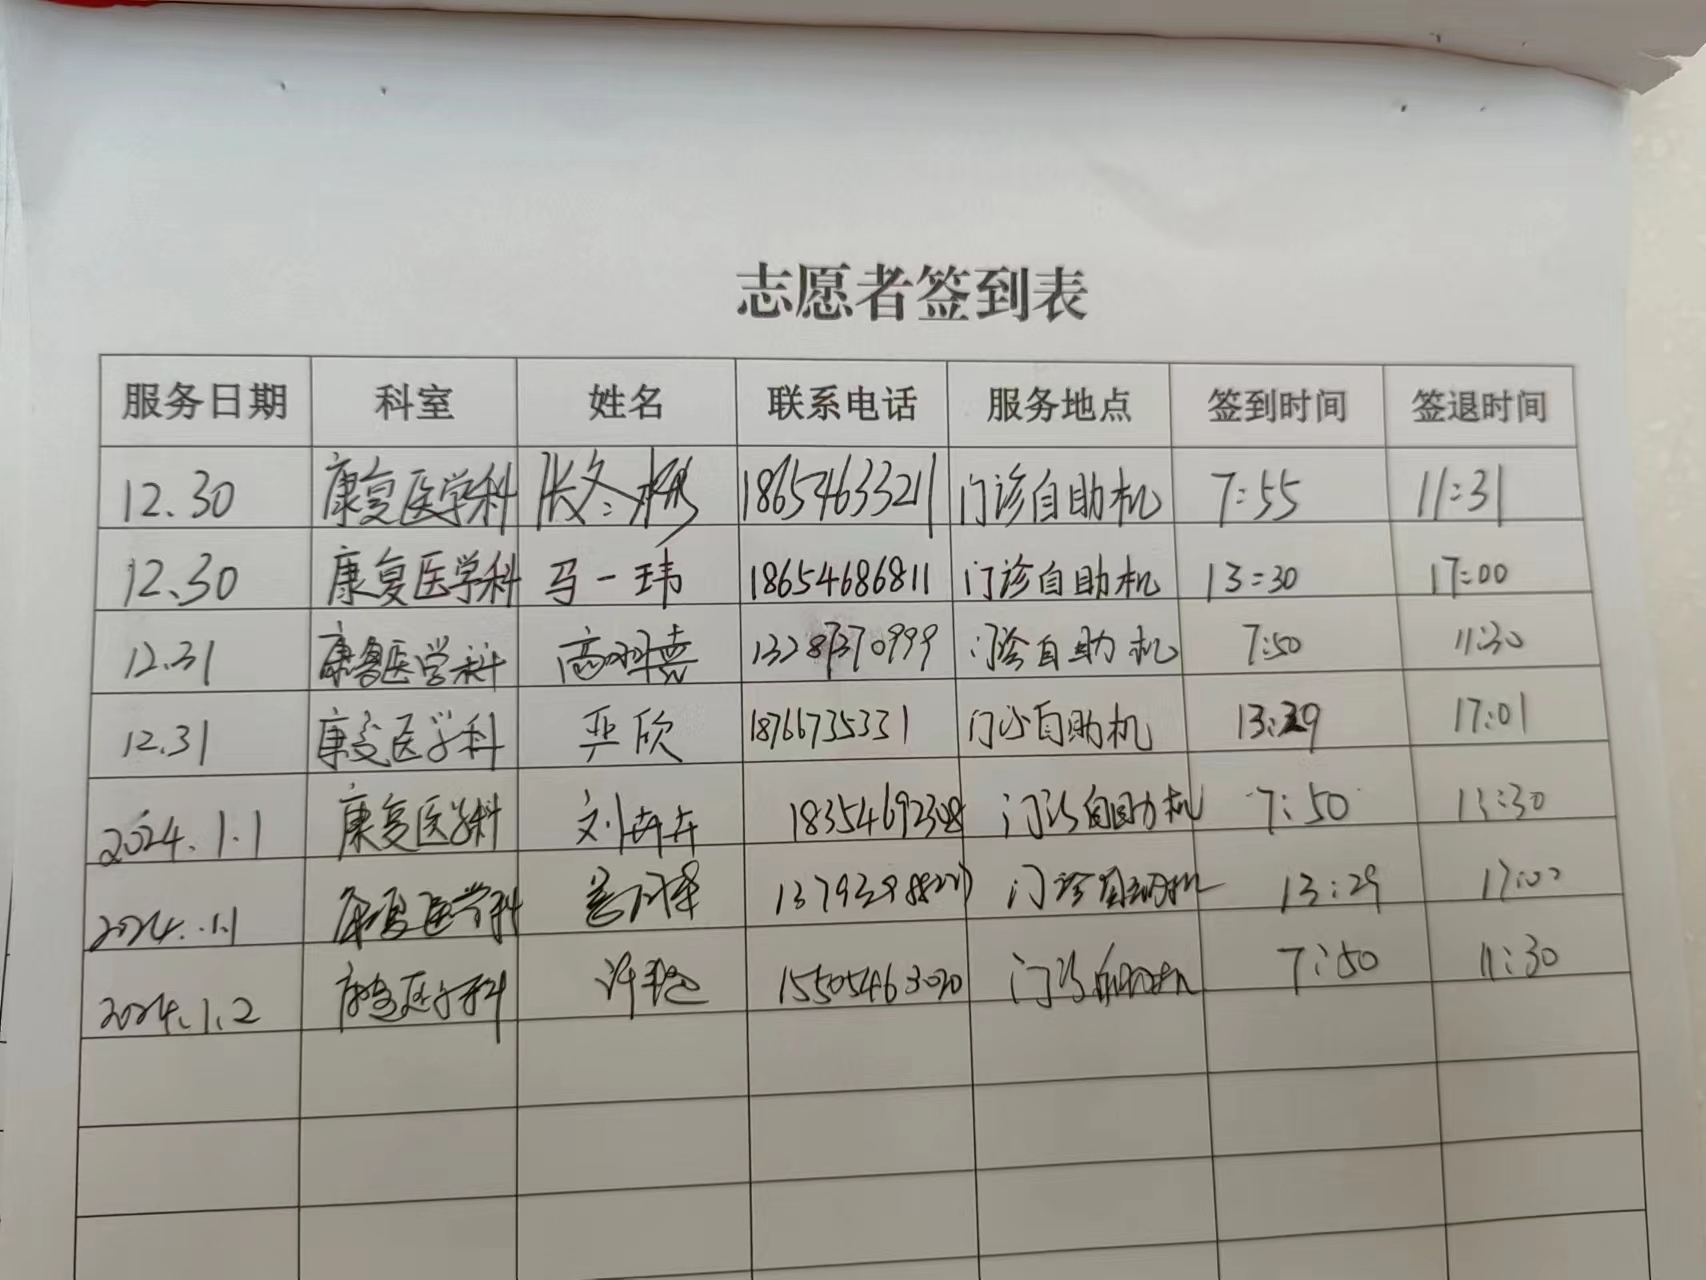 志愿者签到表
服务日期 科室 姓名 联系电话 服务地点 签到时间 签退时间
12.30 康复医学科 张冬梅 18654633211 门诊自助机 7:55 11:31
12.30 康复医学科 马一玮 18654686811 门诊自助机 13:30 17:00
12.31 康复医学科 13287370999 门诊自助机 7:50 11:30
12.31 康复医学科 严欣 18766735331 门诊自助机 13:29 17:01
2024.1.1 康复医学科 刘卉卉 18354692308 门诊自助机 7:50 11:30
2024.1.1 康复医学科 门诊自助机 13:29 17:00
2024.1.2 康复医学科 15505463020 门诊自助机 7:50 11:30